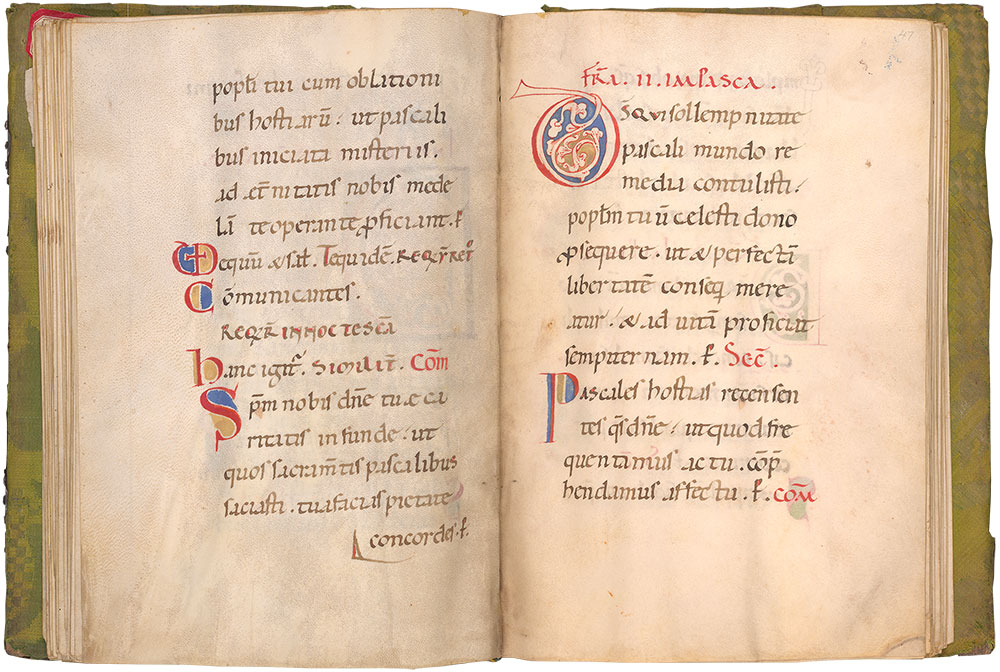 popłi tui cum oblationi
bus hostiarū · ut pascali
bus iniciata misteriis ·
ad et̄nitatis nobis mede
lā te operante ꝓficiant · ꝑ
Dequū & sal̄ · Te quidē · REQR̄ RET͛
Cōmunicantes ·
REQR̄ IN NOCTE SCĀ
hanc igit͛ · Similit̄ · Cōm
Sp̄m nobis dn̄e tuę ca
ritatis infunde · ut
quos sacram̄tis pascalibus
saciasti · tua facias pietate
concordes · ꝑ
FR̄A · II · IN PASCA ·
DS̄ qui sollempnitate
pascali mundo re
media contulisti ·
popłm tuū celesti dono
ꝓsequere · ut & perfectā
libertatē conseq̄ mere
atur · & ad uitā proficiat
sempiternam · ꝑ · Sec̄
Pascales hostias recensen
tes q̄s dn̄e · ut quod fre
quentamus actu · cōp̄
hendamus affectu · ꝑ · Cōm
47